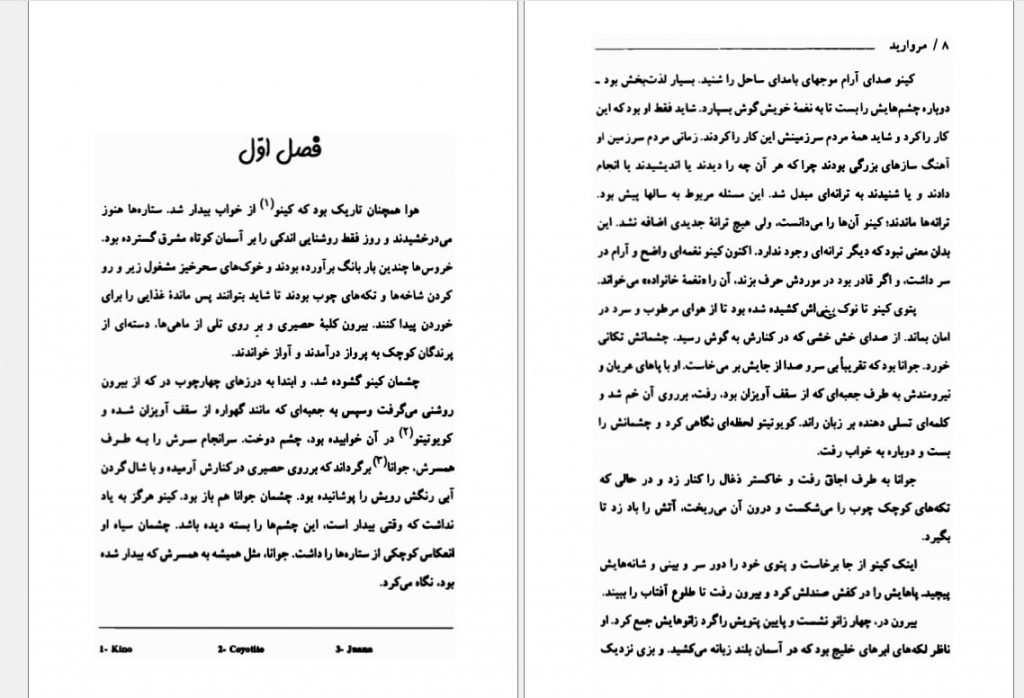 فصل اوّل
هوا همچنان تاریک بود که کینو(۱) از خواب بیدار شد. ستاره‌ها هنوز
می‌درخشیدند و روز فقط روشنایی اندکی را بر آسمان کوتاه مشرق گسترده بود.
خروس‌ها چندین بار بانگ برآورده بودند و خوک‌های سحرخیز مشغول زیر و رو
کردن شاخه‌ها و تکه‌های چوب بودند تا شاید بتوانند پس ماندهٔ غذایی را برای
خوردن پیدا کنند. بیرون کلبهٔ حصیری و بر روی تلی از ماهی‌ها، دسته‌ای از
پرندگان کوچک به پرواز درآمدند و آواز خواندند.
چشمان کینو گشوده شد، و ابتدا به درزهای چهارچوب در که از بیرون
روشنی می‌گرفت وسپس به جعبه‌ای که مانند گهواره از سقف آویزان شده و
کویوتیتو(۲) در آن خوابیده بود، چشم دوخت. سرانجام سرش را به طرف
همسرش، جوانا(۳) برگرداند که برروی حصیری در کنارش آرمیده و با شال گردن
آبی رنگش رویش را پوشانیده بود. چشمان جوانا هم باز بود. کینو هرگز به یاد
نداشت که وقتی بیدار است، این چشم‌ها را بسته دیده باشد. چشمان سیاه او
انعکاس کوچکی از ستاره‌ها را داشت. جوانا، مثل همیشه به همسرش که بیدار شده
بود، نگاه می‌کرد.
1- Kino 2- Coyotito 3- Juana
۸ / مروارید
کینو صدای آرام موجهای بامدای ساحل را شنید. بسیار لذت‌بخش بود ـ
دوباره چشم‌هایش را بست تا به نغمهٔ خویش گوش بسپارد. شاید فقط او بود که این
کار را کرد و شاید همهٔ مردم سرزمینش این کار را کردند. زمانی مردم سرزمین او
آهنگ سازهای بزرگی بودند چرا که هر آن چه را دیدند یا اندیشیدند یا انجام
دادند و یا شنیدند به ترانه‌ای مبدل شد. این مسئله مربوط به سالها پیش بود.
ترانه‌ها ماندند؛ کینو آن‌ها را می‌دانست، ولی هیچ ترانهٔ جدیدی اضافه نشد. این
بدان معنی نبود که دیگر ترانه‌ای وجود ندارد. اکنون کینو نغمه‌ای واضح و آرام در
سر داشت، و اگر قادر بود در موردش حرف بزند، آن را «نغمهٔ خانواده» می‌خواند.
پتوی کینو تا نوک بینی‌اش کشیده شده بود تا از هوای مرطوب و سرد در
امان بماند. از صدای خش خشی که در کنارش به گوش رسید. چشمانش تکانی
خورد. جوانا بود که تقریباً بی سرو صدا از جایش بر می‌خاست. او با پاهای عریان و
نیرومندش به طرف جعبه‌ای که از سقف آویزان بود، رفت، برروی آن خم شد و
کلمه‌ای تسلی دهنده بر زبان راند. کویوتیتو لحظه‌ای نگاهی کرد و چشمانش را
بست و دوباره به خواب رفت.
جوانا به طرف اجاق رفت و خاکستر ذغال را کنار زد و در حالی که
تکه‌های کوچک چوب را می‌شکست و درون آن می‌ریخت، آتش را باد زد تا
بگیرد.
اینک کینو از جا برخاست و پتوی خود را دور سر و بینی و شانه‌هایش
پیچید. پاهایش را در کفش صندلش کرد و بیرون رفت تا طلوع آفتاب را ببیند.
بیرون در، چهار زانو نشست و پایین پتویش را گرد زانوهایش جمع کرد. او
ناظر لکه‌های ابرهای خلیج بود که در آسمان بلند زبانه می‌کشید. و بزی نزدیک